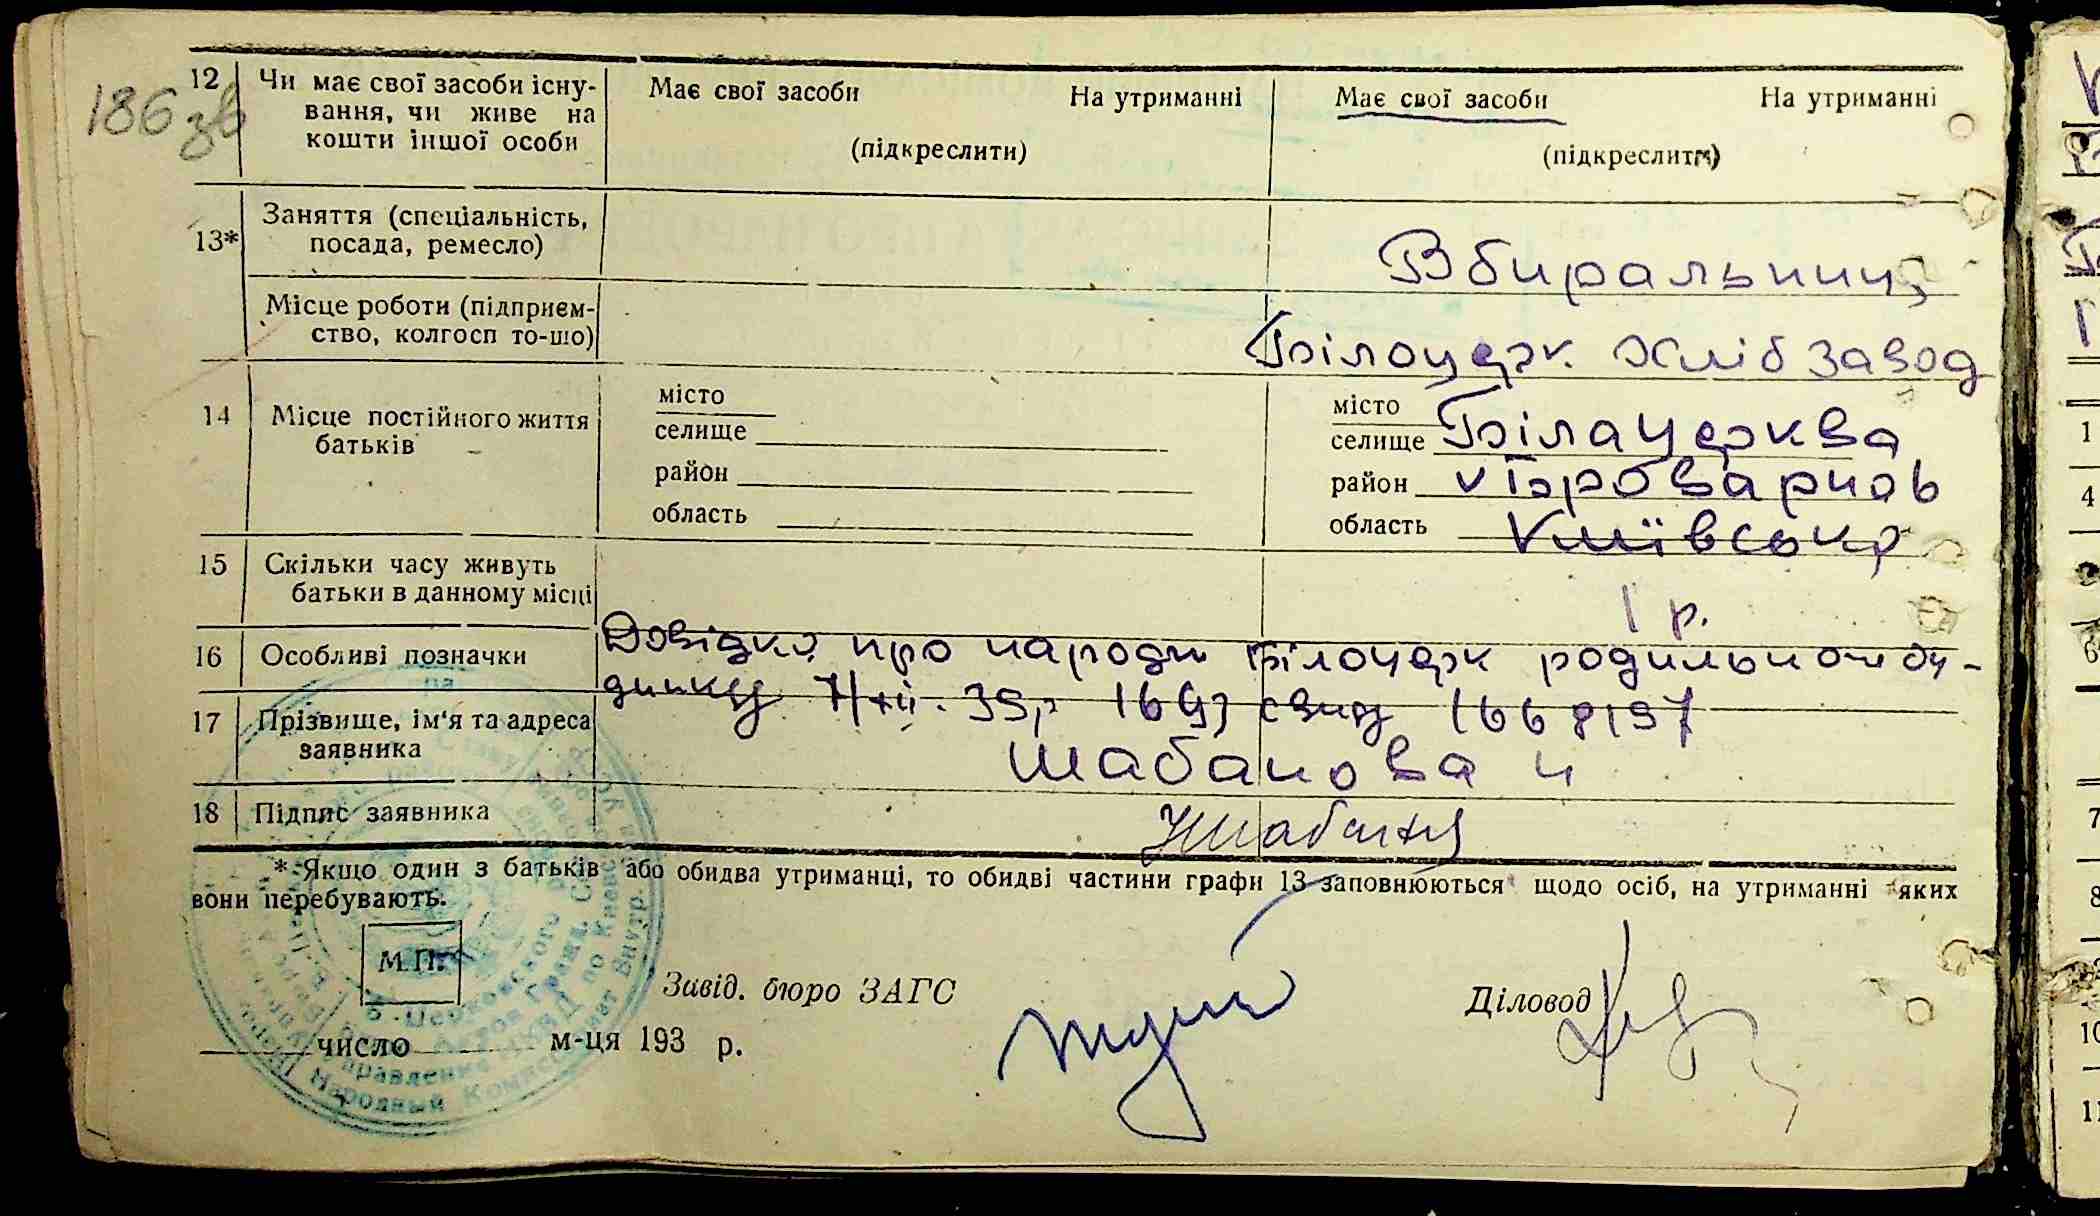 186 зв
12 Чи має свої засоби існу- Має свої засоби На утриманні Має свої засоби На утриманні
вання, чи живе на
кошти іншої особи (підкреслити) (підкреслити)
13* Заняття (спеціальність,
посада, ремесло) Вбиральниц
Місце роботи (підприєм-
ство, колгосп то-що) Білоцерк. Хлібзавод
14 Місце постійного життя місто місто
батьків селище селище Білацерква
район район
область область Київська
15 Скільки часу живуть
батьки в данному місці 1 р.
16 Особливі позначки Довідка про народж Білоцерк родильного бу-
динку 7/XII. 39р свид
17 Прізвище, ім'я та адреса
заявника Шабанова
18 Підпис заявника
* Якщо один з батьків або обидва утриманці, то обидві частини графи 13 заповнюються щодо осіб, на утриманні яких
вони перебувають.
М.П.
Завід. бюро ЗАГС Діловод
число м-ця 193 р.
Народный Комиссариат Внутр.
1
4
6
7
8
10
11